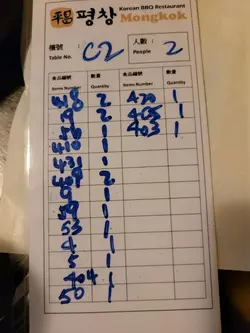 평창 Korean BBQ Restaurant
Mongkok
檯號： 人數：
Table No. C2 People 2
食品編號 數量 食品編號 數量
Items Number Quantity Items Number Quantity
2 420 1
2 1
1 403 1
410 1
431 1
2
1
59 1
53 1
4 1
5 1
404 1
50 1